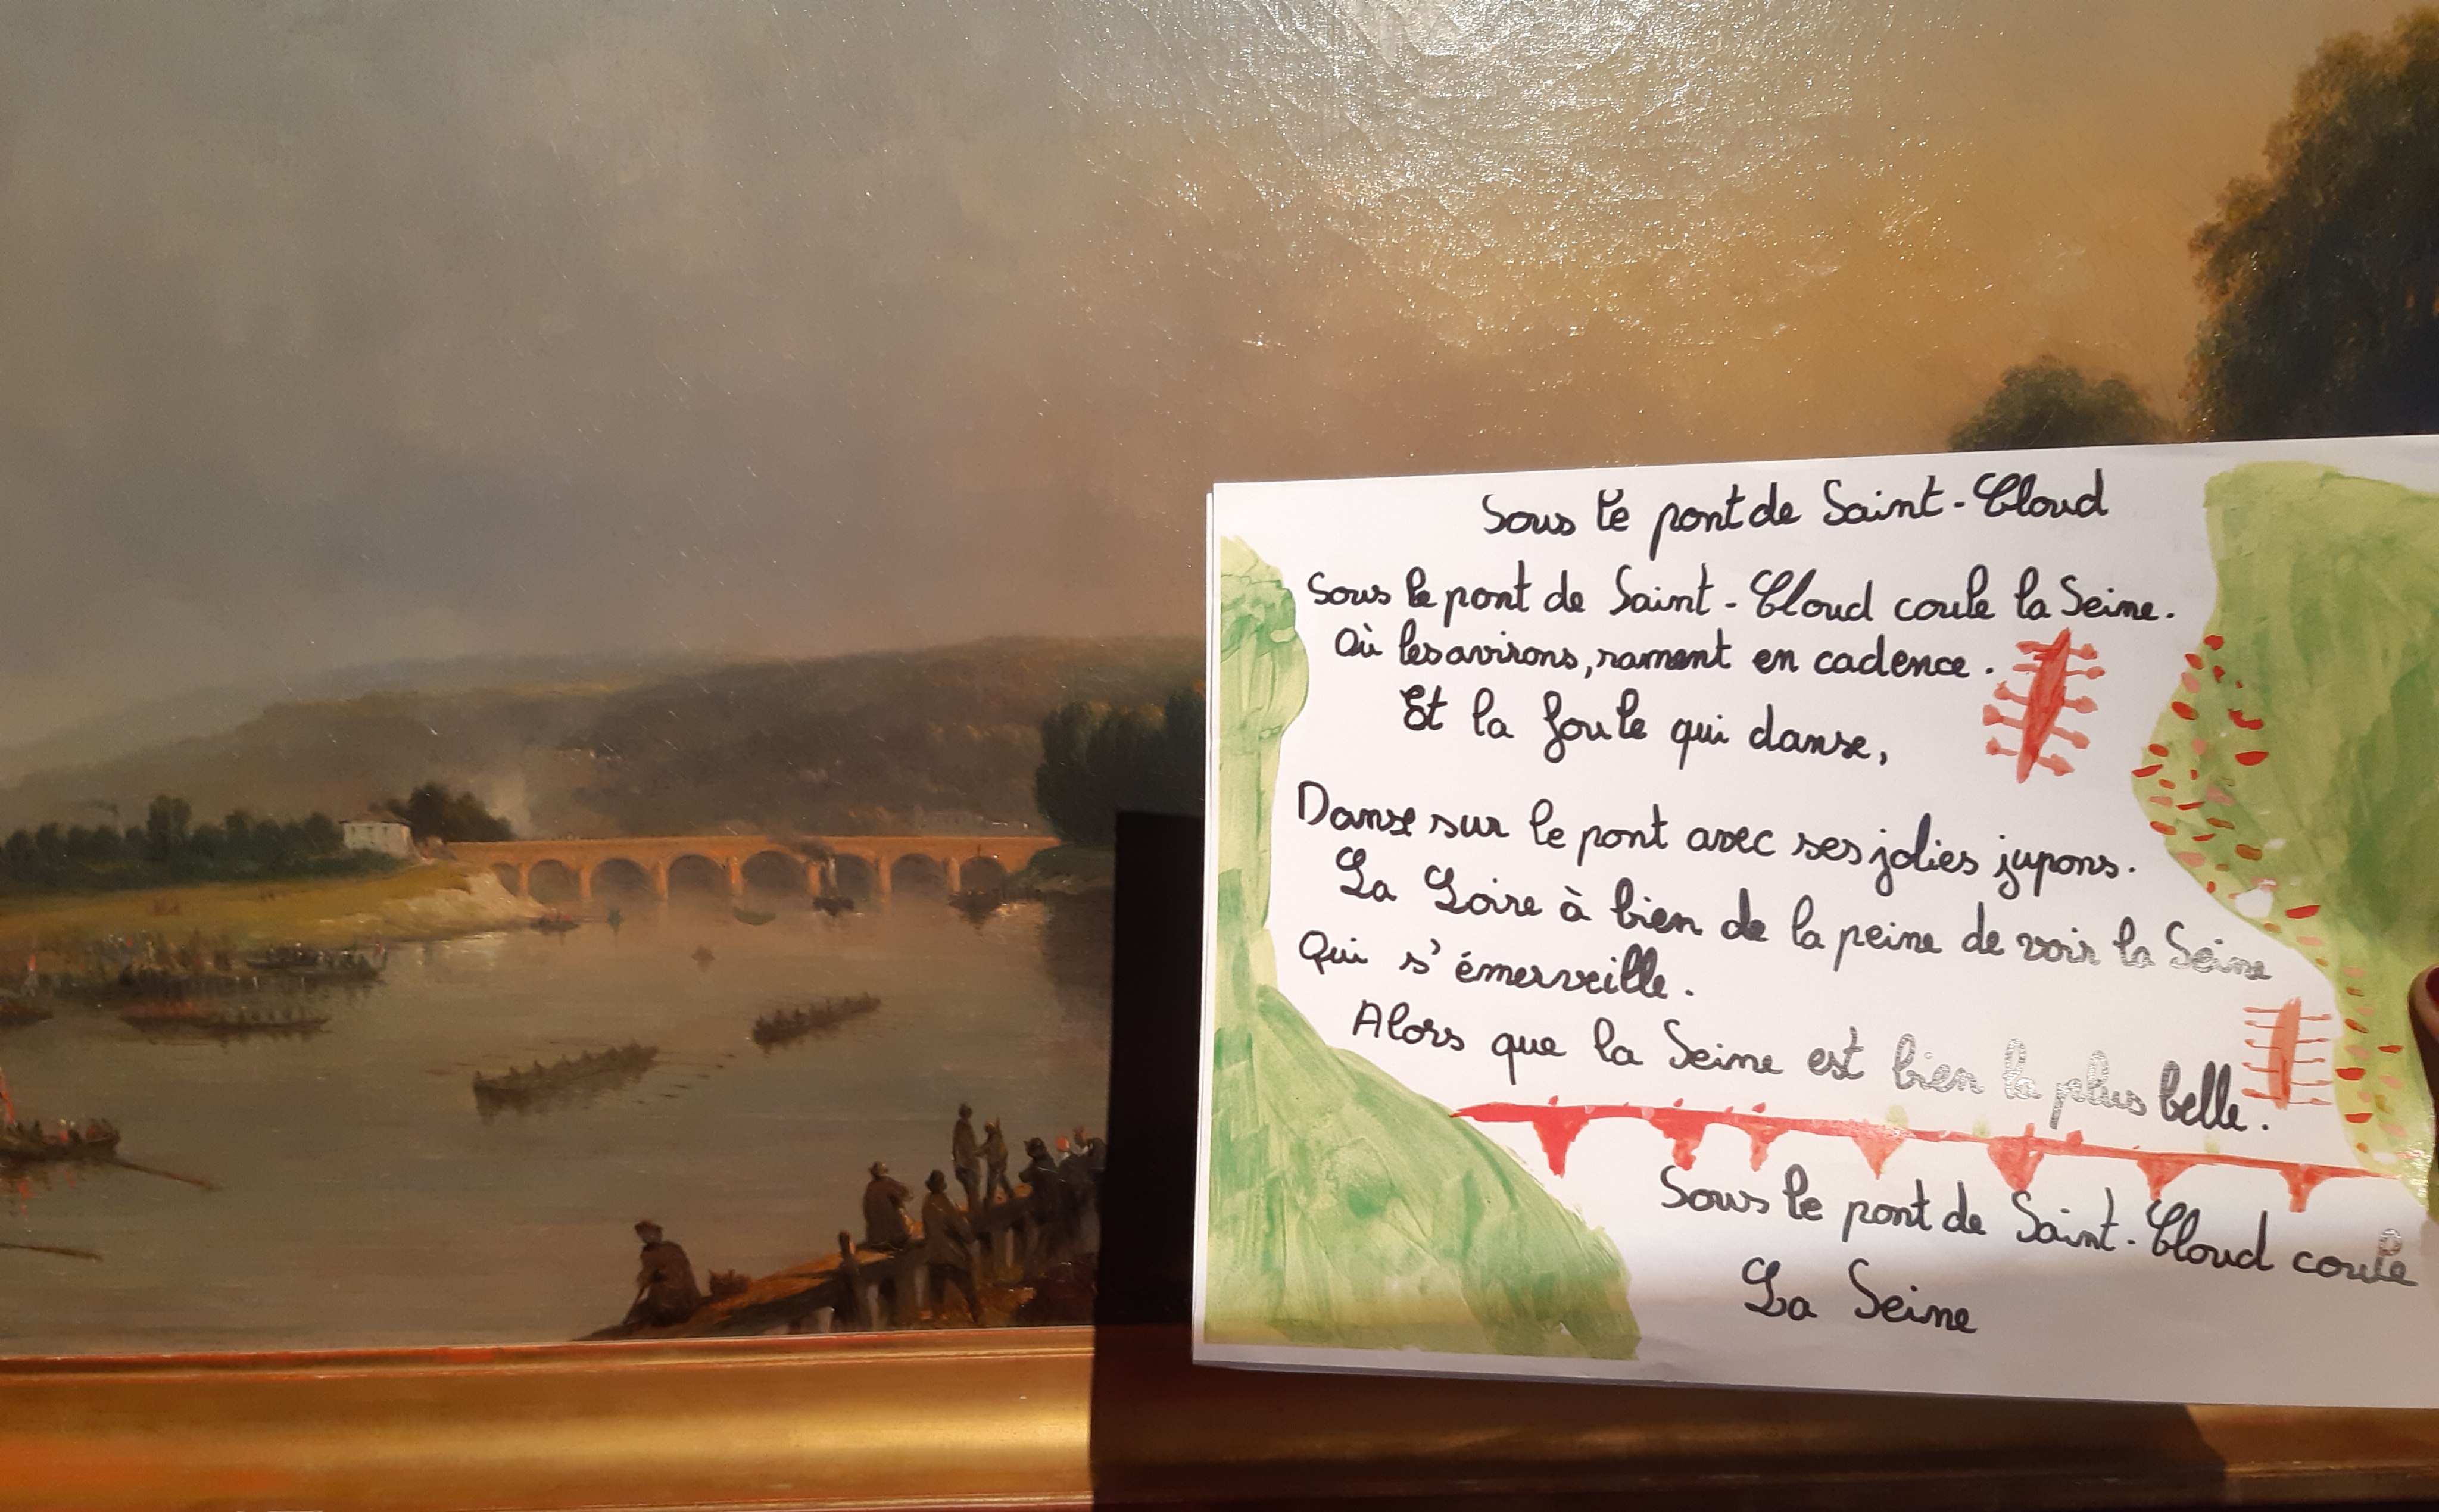 Sous le pont de Saint-Cloud
Sous le pont de Saint-Cloud coule la Seine.
Où les avirons, rament en cadence.
Et la foule qui danse,
Danse sur le pont avec ses jolies jupons.
La Loire à bien de la peine de voir la Seine
Qui s'émerveille.
Alors que la Seine est bien la plus belle.
Sous le pont de Saint-Cloud coule
La Seine